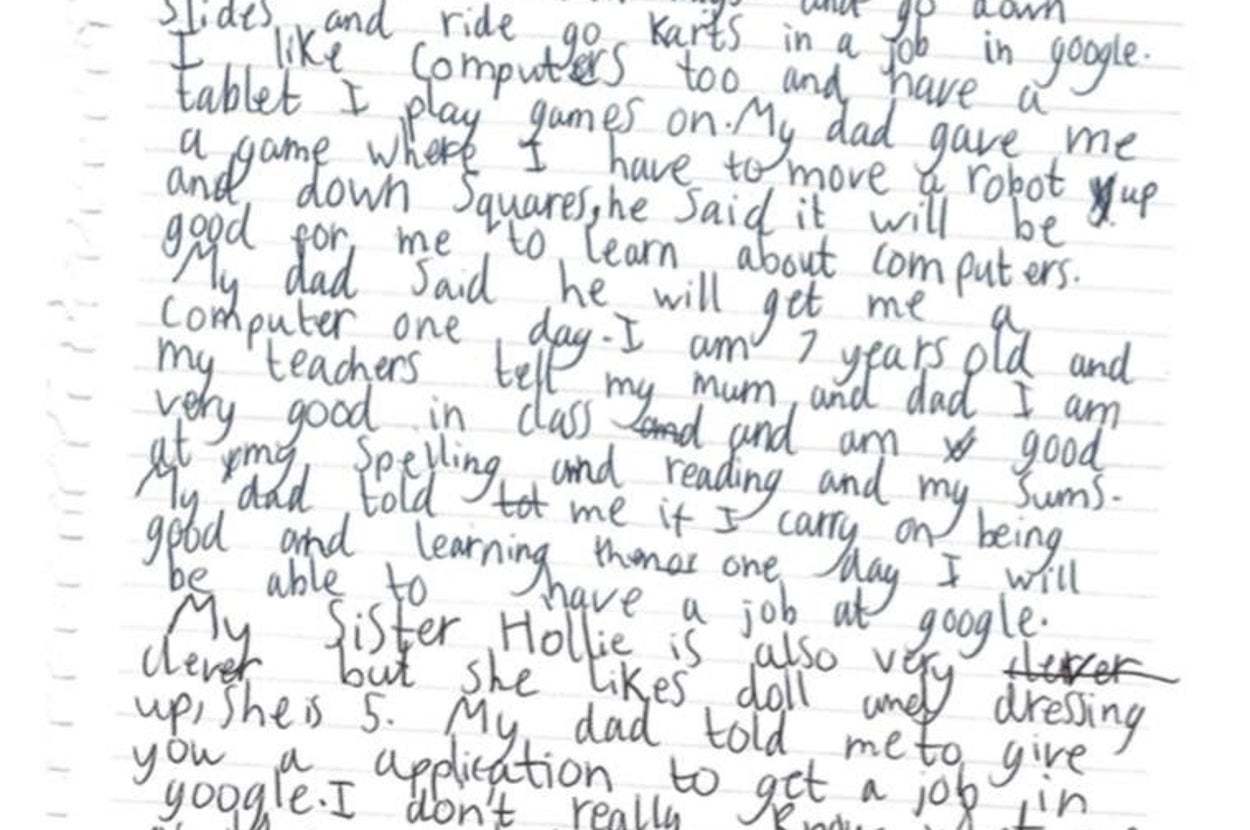 and go down
slides and ride go karts in a job in google.
I like computers too and have a
tablet I play games on. My dad gave me
a game where I have to move a robot up
and down squares, he said it will be
good for me to learn about computers.
My dad said he will get me a
computer one day. I am 7 years old and
my teachers tell my mum and dad I am
very good in class and and am good
at my spelling and reading and my sums.
My dad told tot me if I carry on being
good and learning one day I will
be able to have a job at google.
My sister Hollie is also very clever
clever but she likes doll and dressing
up, she is 5. My dad told me to give
you a application to get a job in
google. I don't really know